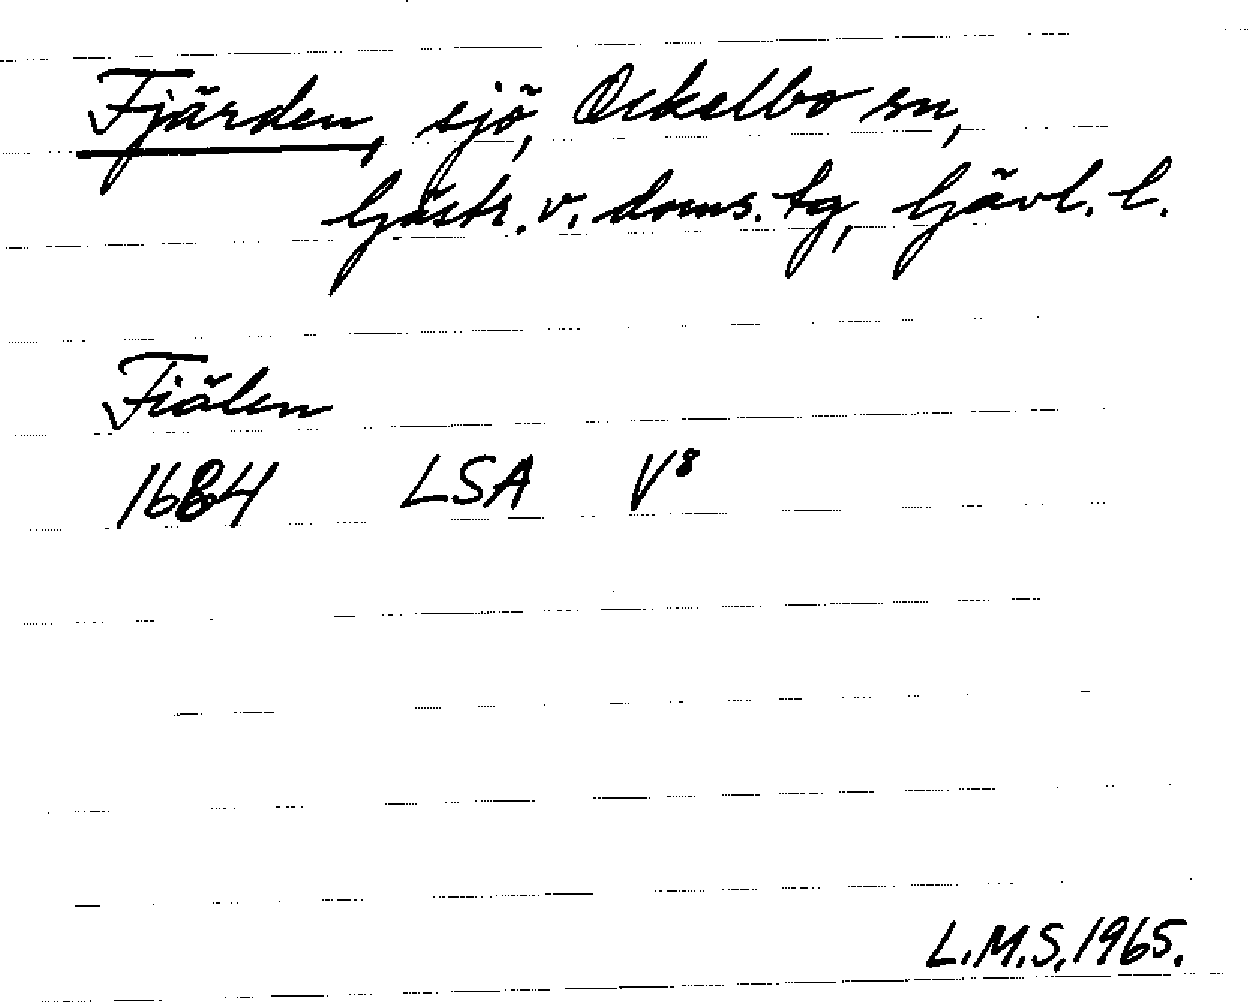 Fjärden, sjö, Ockelbo sn,
Gästr. v. doms. tg, Gävl. l.
Fiälen
1684 LSA V⁸
L.M.S. 1965.